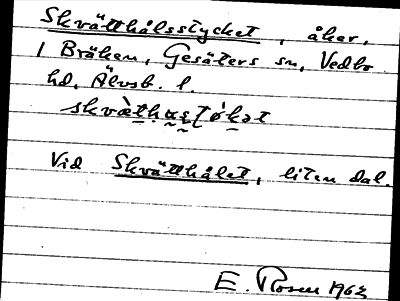 Skvätthålsstycket, åker,
1 Bräken, Gesäters sn, Vedbo
hd, Älvsb. l.
Vid Skvätthålet, liten dal.
E. Rosen 1963